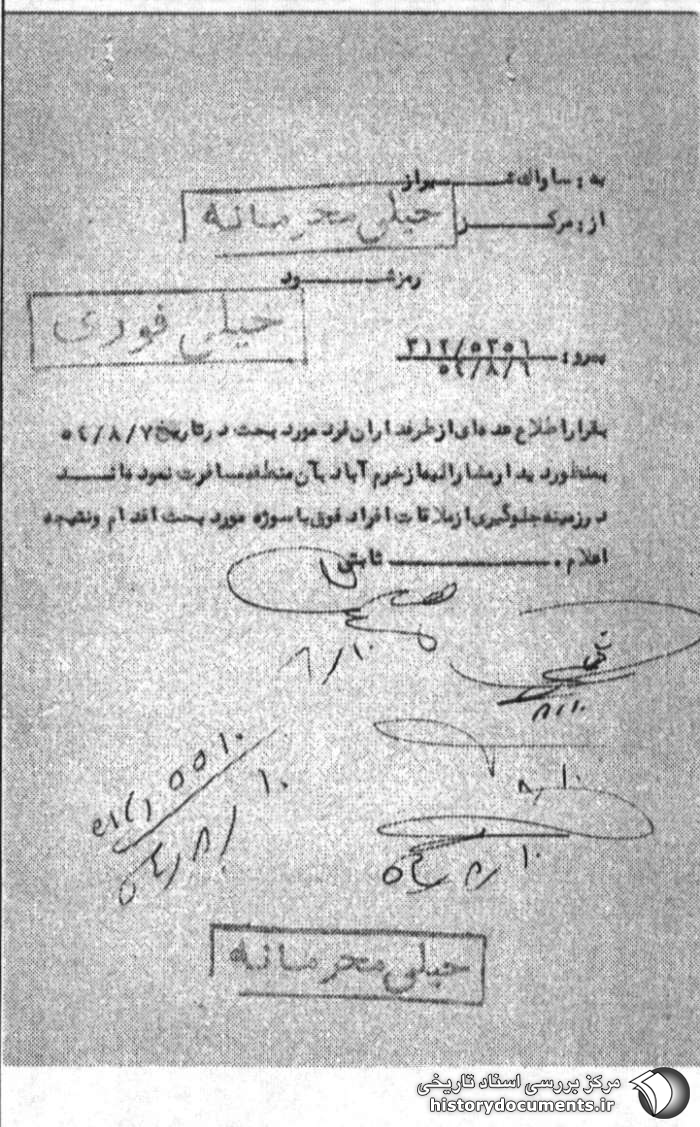 به : ساواك شيراز
خیلی محرمانه
از : مركز
رمز شود
خیلی فوری
پيرو : ۳۱۲/۵۳۵۶
۵۴/۸/۶
بقرار اطلاع عده اى از طرفداران فرد مورد بحث در تاريخ ۵۴/۸/۷
بمنظور ديدار مشاراليه از خرم آباد بآن منطقه مسافرت نموده اند
در زمينه جلوگيرى از ملاقات افراد فوق با سوژه مورد بحث اقدام و نتيجه
اعلام . ثابتى
۸/۱۰
۸/۱۰
۵۴/۸/۱۰
۵۴/۸/۱۰
خیلی محرمانه
مرکز بررسی اسناد تاریخی
historydocuments.ir